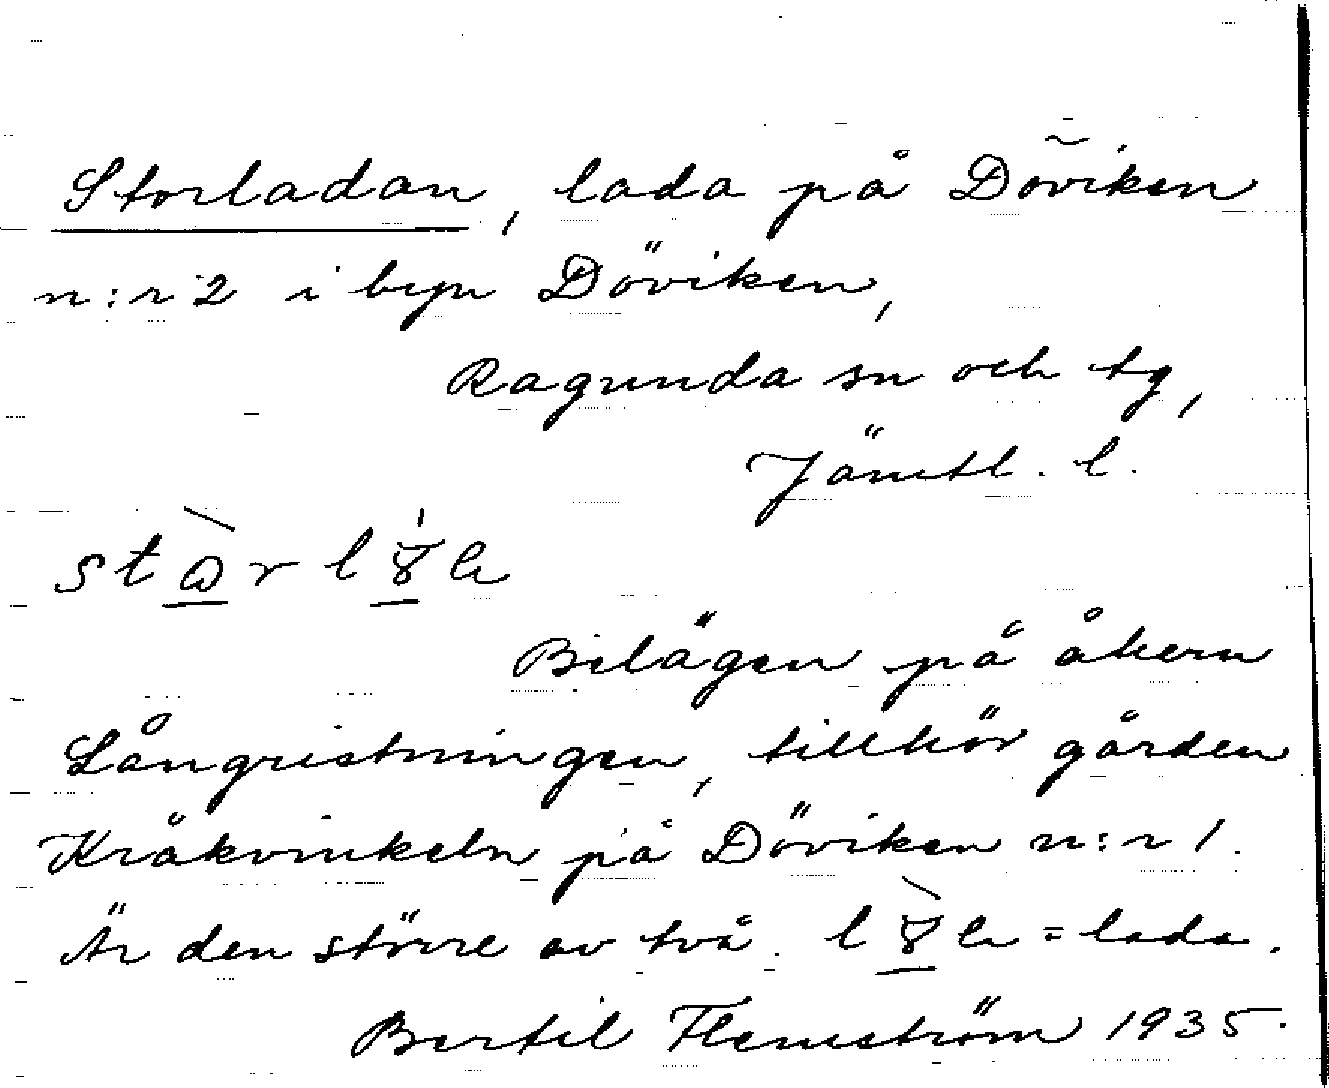 Storladan, lada på Döviken
n:r 2 i byn Döviken,
Ragunda sn och tg,
Jämtl. l.
Belägen på åkern
Långristningen, tillhör gården
Kråkvinkeln på Döviken n:r 1.
Är den större av två. = lada.
Bertil Flemström 1935.